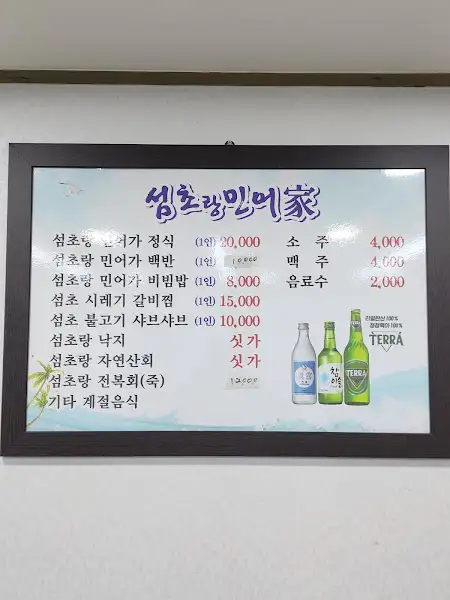 섬초랑민어家
섬초랑 민어가 정식 (1인) 20,000
섬초랑 민어가 백반 (1인) 10,000
섬초랑 민어가 비빔밥 (1인) 8,000
섬초 시레기 갈비찜 (1인) 15,000
섬초 불고기 샤브샤브 (1인) 10,000
섬초랑 낙지 싯가
섬초랑 자연산회 싯가
섬초랑 전복회(죽) 12,000
기타 계절음식
소 주 4,000
맥 주 4,000
음료수 2,000
리얼탄산 100%
청정맥아 100%
TERRA
참이슬
TERRA